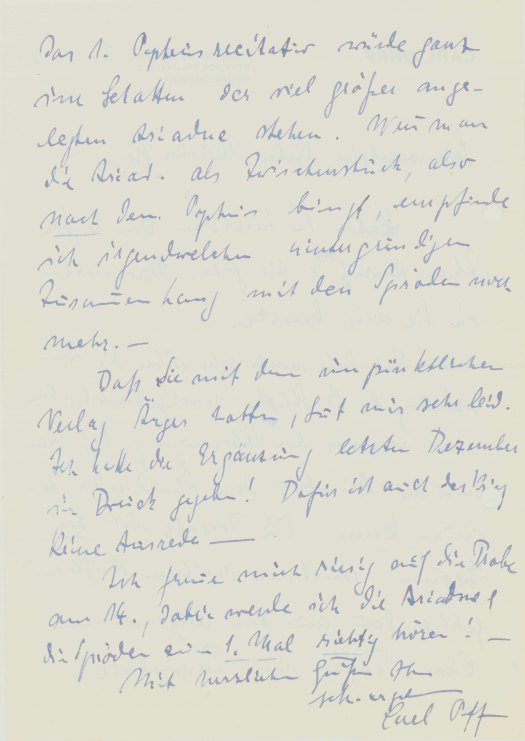 Das 1. Orpheusrecitativ würde ganz
im Schatten der viel größer ange-
legten Ariadne stehen. Wenn man
die Ariad. als Zwischenstück, also
nach dem Orpheus bringt, empfinde
ich irgendwelchen hintergründigen
Zusammenhang mit den Spröden noch
mehr. —
Daß Sie mit dem unpünktlichen
Verlag Ärger hatten, tut mir sehr leid.
Ich hatte die Ergänzung letzten Dezember
in Druck gegeben! Dafür ist auch der Krieg
keine Ausrede —
Ich freue mich riesig auf die Probe
am 14., dabei werde ich die Ariadne &
die Spröden zum 1. Mal richtig hören! —
Mit herzlichen Grüßen Ihr
sehr ergeb.
Carl Orff